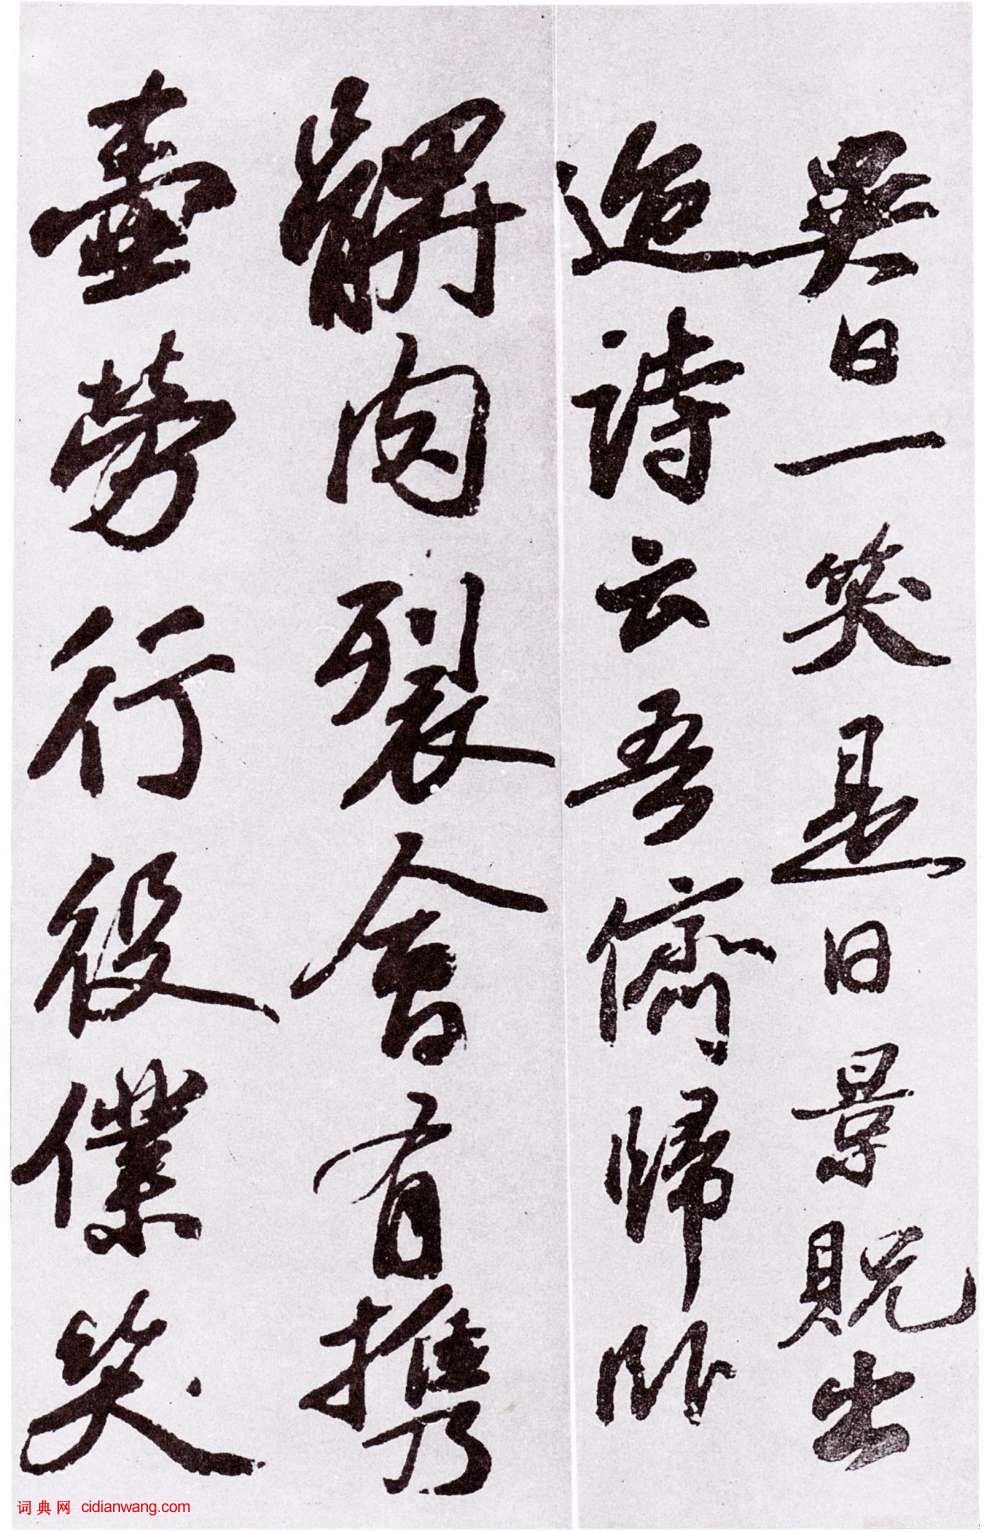 異日一笑是日景貺出
迩詩云吾儕歸卧
髀肉裂會有携
壺勞行役僕笑
词典网 cidianwang.com